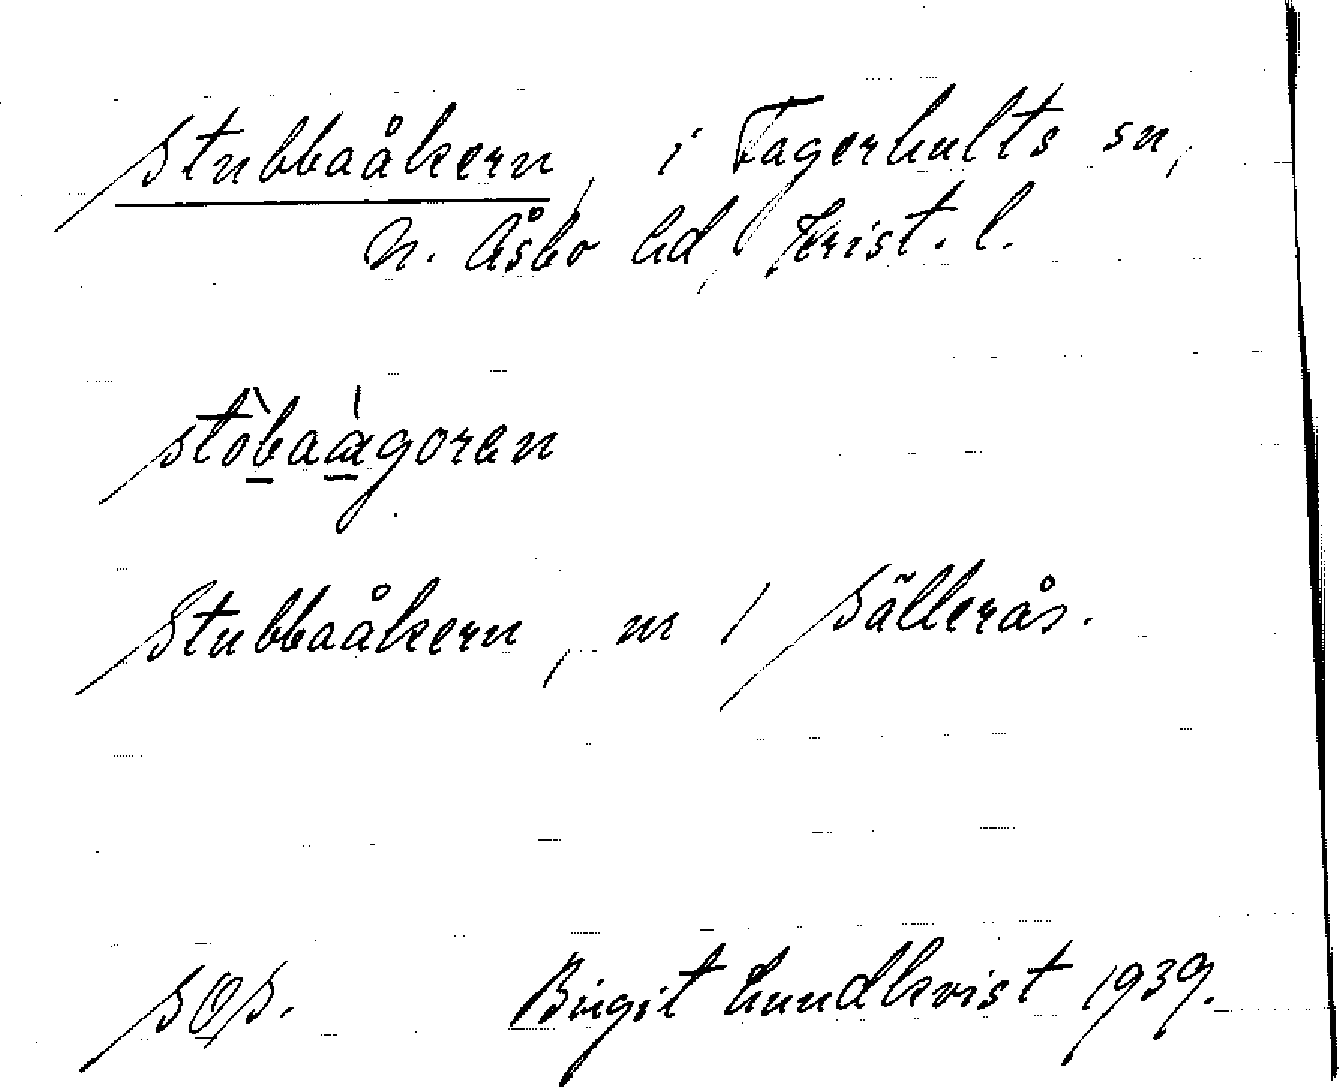 Stubbaåkern, i Fagerhults sn,
N. Åsbo hd, Krist. l.
stòbaágoren
Stubbaåkern, m / Sällerås.
SOS. Birgit Lundkvist 1939.